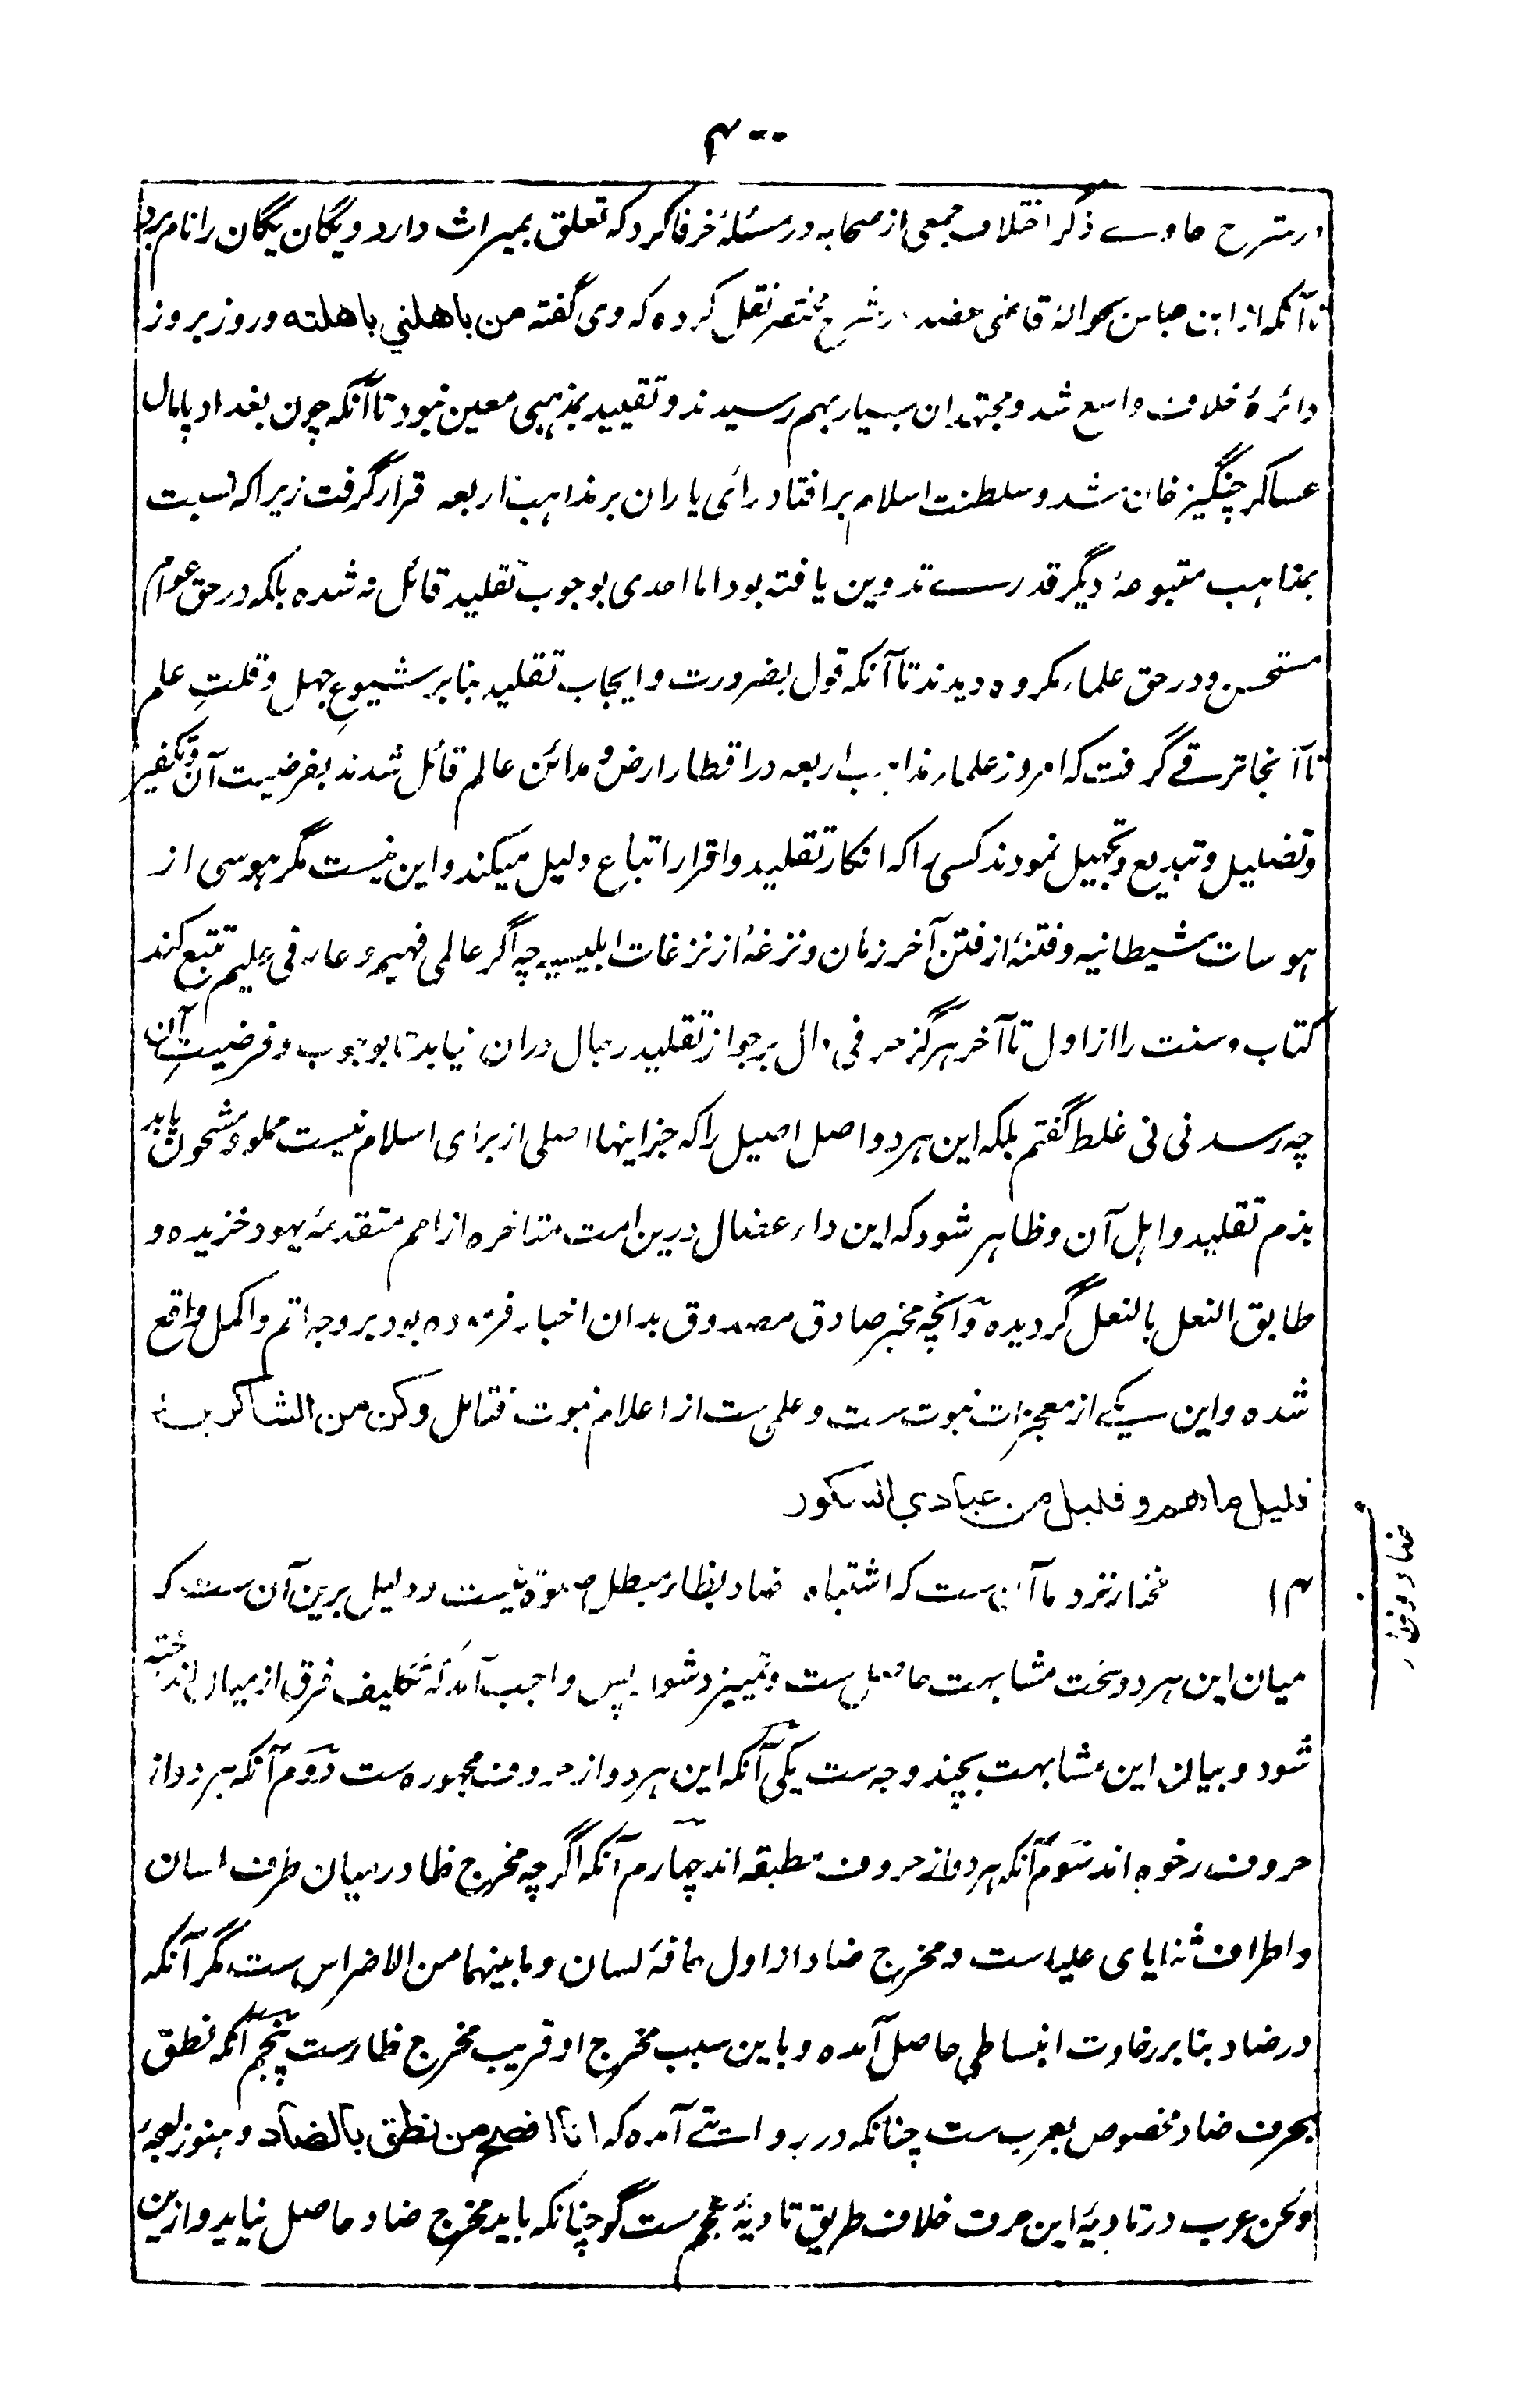 ۴۰۰
در شرح حاوے ذکر اختلاف جمعی از صحابہ در مسئلۂ خرقا کرد کہ تعلق بمیراث دارد و یگان یگان را نام برد
تا آنکہ از ابن عباس بحوالۂ قاضی عضد در شرح مختصر نقل کردہ کہ وی گفتہ من باهلني باهلته و روز بروز
دائرۂ خلاف واسع شد و مجتہدان بسیار بہم رسیدند و تقیید بمذہبی معین نبود تا آنکہ چون بغداد پامال
عساکر چنگیز خان شد و سلطنت اسلام بر افتاد رائی یاران بر مذاہب اربعہ قرار گرفت زیرا کہ نسبت
بمذاہب متبوعۂ دیگر قدرے تدوین یافتہ بود اما احدی بوجوب تقلید قائل نہ شدہ بلکہ در حق عوام
مستحسن و در حق علماء مکروہ دیدند تا آنکہ قول بضرورت و ایجاب تقلید بنا بر شیوعِ جہل و قلتِ علم
تا آنجا ترقے گرفت کہ امروز علماء مذاہب اربعہ در اقطار ارض و مدائن عالم قائل شدند بفرضیت آن و تکفیر
و تضلیل و تبدیع و تجہیل نمودند کسی را کہ انکار تقلید و اقرار اتباع دلیل میکند و این نیست مگر ہوسی از
ہوسات شیطانیہ و فتنۂ از فتن آخر زمان و نزغۂ از نزغات ابلیسیہ چہ اگر عالمی فہیم و عارفی علیم تتبع کند
کتاب و سنت را از اول تا آخر ہرگز حرفی دال بر جواز تقلید رجال دران نیابد تا بوجوب و فرضیتِ آن
چہ رسد نی نی غلط گفتم بلکہ این ہر دو اصل اصیل را کہ جز اینہا اصلی از برای اسلام نیست مملو و مشحون یابد
بذم تقلید و اہل آن و ظاہر شود کہ این داء عضال درین امت متاخرہ از امم متقدمۂ یہود خزیدہ و
طابق النعل بالنعل گردیدہ و آنچہ مخبر صادق مصدوق بدان اخبار فرمودہ بود بر وجہ اتم و اکمل واقع
شدہ و این یکے از معجزات نبوت ست و علمی ست از اعلام نبوت فتامل وکن من الشاکرین
قلیل ما هم و قلیل من عبادي الشکور
۱۴ مختار نزد ما آن ست کہ اشتباہ ضاد بظا مبطل صلوٰة نیست و دلیل برین آن ست کہ
میان این ہر دو سخت مشابہت حاصل ست و تمییز دشوار پس واجب آمد کہ تکلیف فرق از میان انداختہ
شود و بیان این مشابہت بچند وجہ ست یکی آنکہ این ہر دو از حروف مجہورہ ست دوم آنکہ ہر دو از
حروف رخوہ اند سوم آنکہ ہر دو از حروف مطبقہ اند چہارم آنکہ اگرچہ مخرج ظا درمیان طرف لسان
و اطراف ثنایای علیا ست و مخرج ضاد از اول حافۂ لسان و ما بینہما من الاضراس ست مگر آنکہ
در ضاد بنا بر رخاوت انبساطی حاصل آمدہ و باین سبب مخرج او قریب مخرج ظا ست پنجم آنکہ نطق
بحرف ضاد مخصوص بعرب ست چنانکہ در روایتے آمدہ کہ انا افصح من نطق بالضاد و ہنوز لہجۂ
و لحن عرب در تادیۂ این حرف خلاف طریق تادیۂ عجم ست گو چنانکہ باید مخرج ضاد حاصل نیاید و ازین
ضاد و ظاء